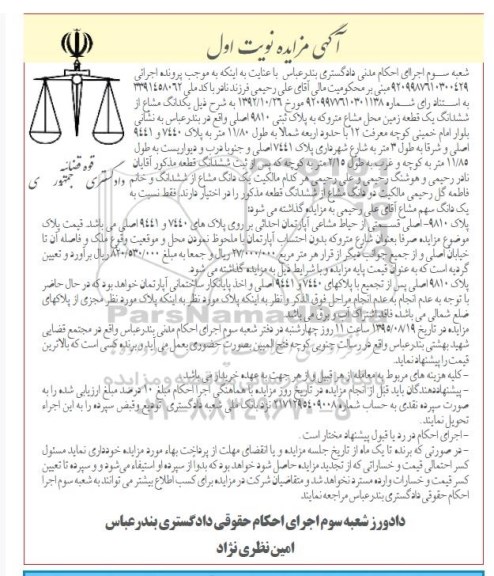 آگهی مزایده نوبت اول
قوه قضائیه
دادگستری جمهوری
شعبه سوم اجرای احکام مدنی دادگستری بندرعباس با عنایت به اینکه به موجب پرونده اجرائی
مبنی بر محکومیت مالی آقای علی رحیمی فرزند نادر با کد ملی ۳۳۹۱۴۵۸۰۶۲
به استناد رای شماره ۹۲۰۹۹۷۷۶۱۰۳۰۱۱۳۸ مورخ ۱۳۹۲/۱۰/۲۶ به شرح ذیل یکدانگ مشاع از
ششدانگ یک قطعه زمین محل مشاع متروکه به پلاک ثبتی ۹۸۱۰ اصلی واقع در بندرعباس به نشانی
بلوار امام خمینی کوچه معرفت ۱۲ با حدود اربعه شمالا به طول ۱۱/۸۰ متر به پلاک ۷۴۴۰ و ۹۴۴۱
اصلی و شرقا به طول ۳ متر به شارع شهرداری پلاک ۷۴۴۱ اصلی و جنوبا درب و دیواریست به طول
۱۱/۸۵ متر به کوچه و غربا به طول ۲/۱۵ متر به کوچه که پس از ثبت ششدانگ قطعه مذکور آقایان
نادر رحیمی و هوشنگ رحیمی و علی رحیمی هر کدام مالکیت یک دانگ مشاع از ششدانگ و خانم
فاطمه گل رحیمی مالکیت دانگ مشاع از ششدانگ قطعه مذکور را در اختیار دارند، فقط نسبت به
یک دانگ سهم مشاع آقای علی رحیمی به مزایده گذاشته می شود:
پلاک ۹۸۱۰- اصلی قسمتی از حیاط مشاعی آپارتمان احداثی بر روی پلاک های ۷۴۴۰ و ۹۴۴۱ اصلی می باشد. قیمت پلاک
موضوع مزایده صرفا بعنوان شارع متروکه بدون احتساب آپارتمان با ملحوظ نمودن محل و موقعیت وقوع ملک و فاصله آن تا
خیابان اصلی و از جمیع جوانب دیگر از قرار هر متر مربع ۲۷/۰۰۰/۰۰۰ ریال و جمعا به مبلغ ۸۲۰/۵۳۰/۰۰۰ ریال برآورد و تعیین
گردیده است که به عنوان قیمت پایه مزایده و با شرایط ذیل به مزایده گذاشته می شود.
پلاک ۹۸۱۰ اصلی پس از تجمیع با پلاکهای ۷۴۴۰ و ۹۴۴۱ اصلی و اخذ پایانکار ساختمانی آپارتمان خواهد بود که در حال حاضر
با توجه به عدم انجام مراحل فوق الذکر و نظر به اینکه پلاک مورد نظر مجزی از پلاکهای
ضلع شمالی می باشد، فاقد اشتراک آب و برق می باشد.
مزایده در تاریخ ۱۳۹۵/۰۸/۱۹ ساعت ۱۱ روز چهارشنبه در دفتر شعبه سوم اجرای احکام مدنی بندرعباس واقع در مجتمع قضایی
شهید بهشتی بندرعباس واقع در رسالت جنوبی کوچه فتح المبین بصورت حضوری بعمل می آید و برنده کسی است که بالاترین
قیمت را پیشنهاد نماید.
- کلیه هزینه های مربوط به معامله از هر قبیل و از هر جهت به عهده خریدار می باشد.
- پیشنهاددهندگان باید قبل از انجام مزایده در تاریخ روز مزایده با هماهنگی اجرا احکام مبلغ ۱۰ درصد مبلغ ارزیابی شده را به
صورت سپرده نقدی به حساب شماره ۲۱۷۱۲۹۵۴۰۹۰۰۸ نزد بانک ملی شعبه دادگستری تودیع و قبض سپرده را به این اجراء
تحویل نمایند.
- اجرای احکام در رد یا قبول پیشنهاد مختار است.
- در صورتی که برنده تا یک ماه از تاریخ جلسه مزایده و یا انقضای مهلت از پرداخت بهاء مورد مزایده خودداری نماید مسئول
کسر احتمالی قیمت و خساراتی که از تجدید مزایده حاصل شود خواهد بود که بدوا از سپرده او استیفاء می شود و سپرده تا تعیین
کسر قیمت و خسارات وارده مسترد نخواهد شد و متقاضیان شرکت در مزایده برای کسب اطلاع بیشتر می توانند به شعبه سوم اجرا
احکام حقوقی دادگستری بندرعباس مراجعه نمایند.
دادورز شعبه سوم اجرای احکام حقوقی دادگستری بندرعباس
امین نظری نژاد